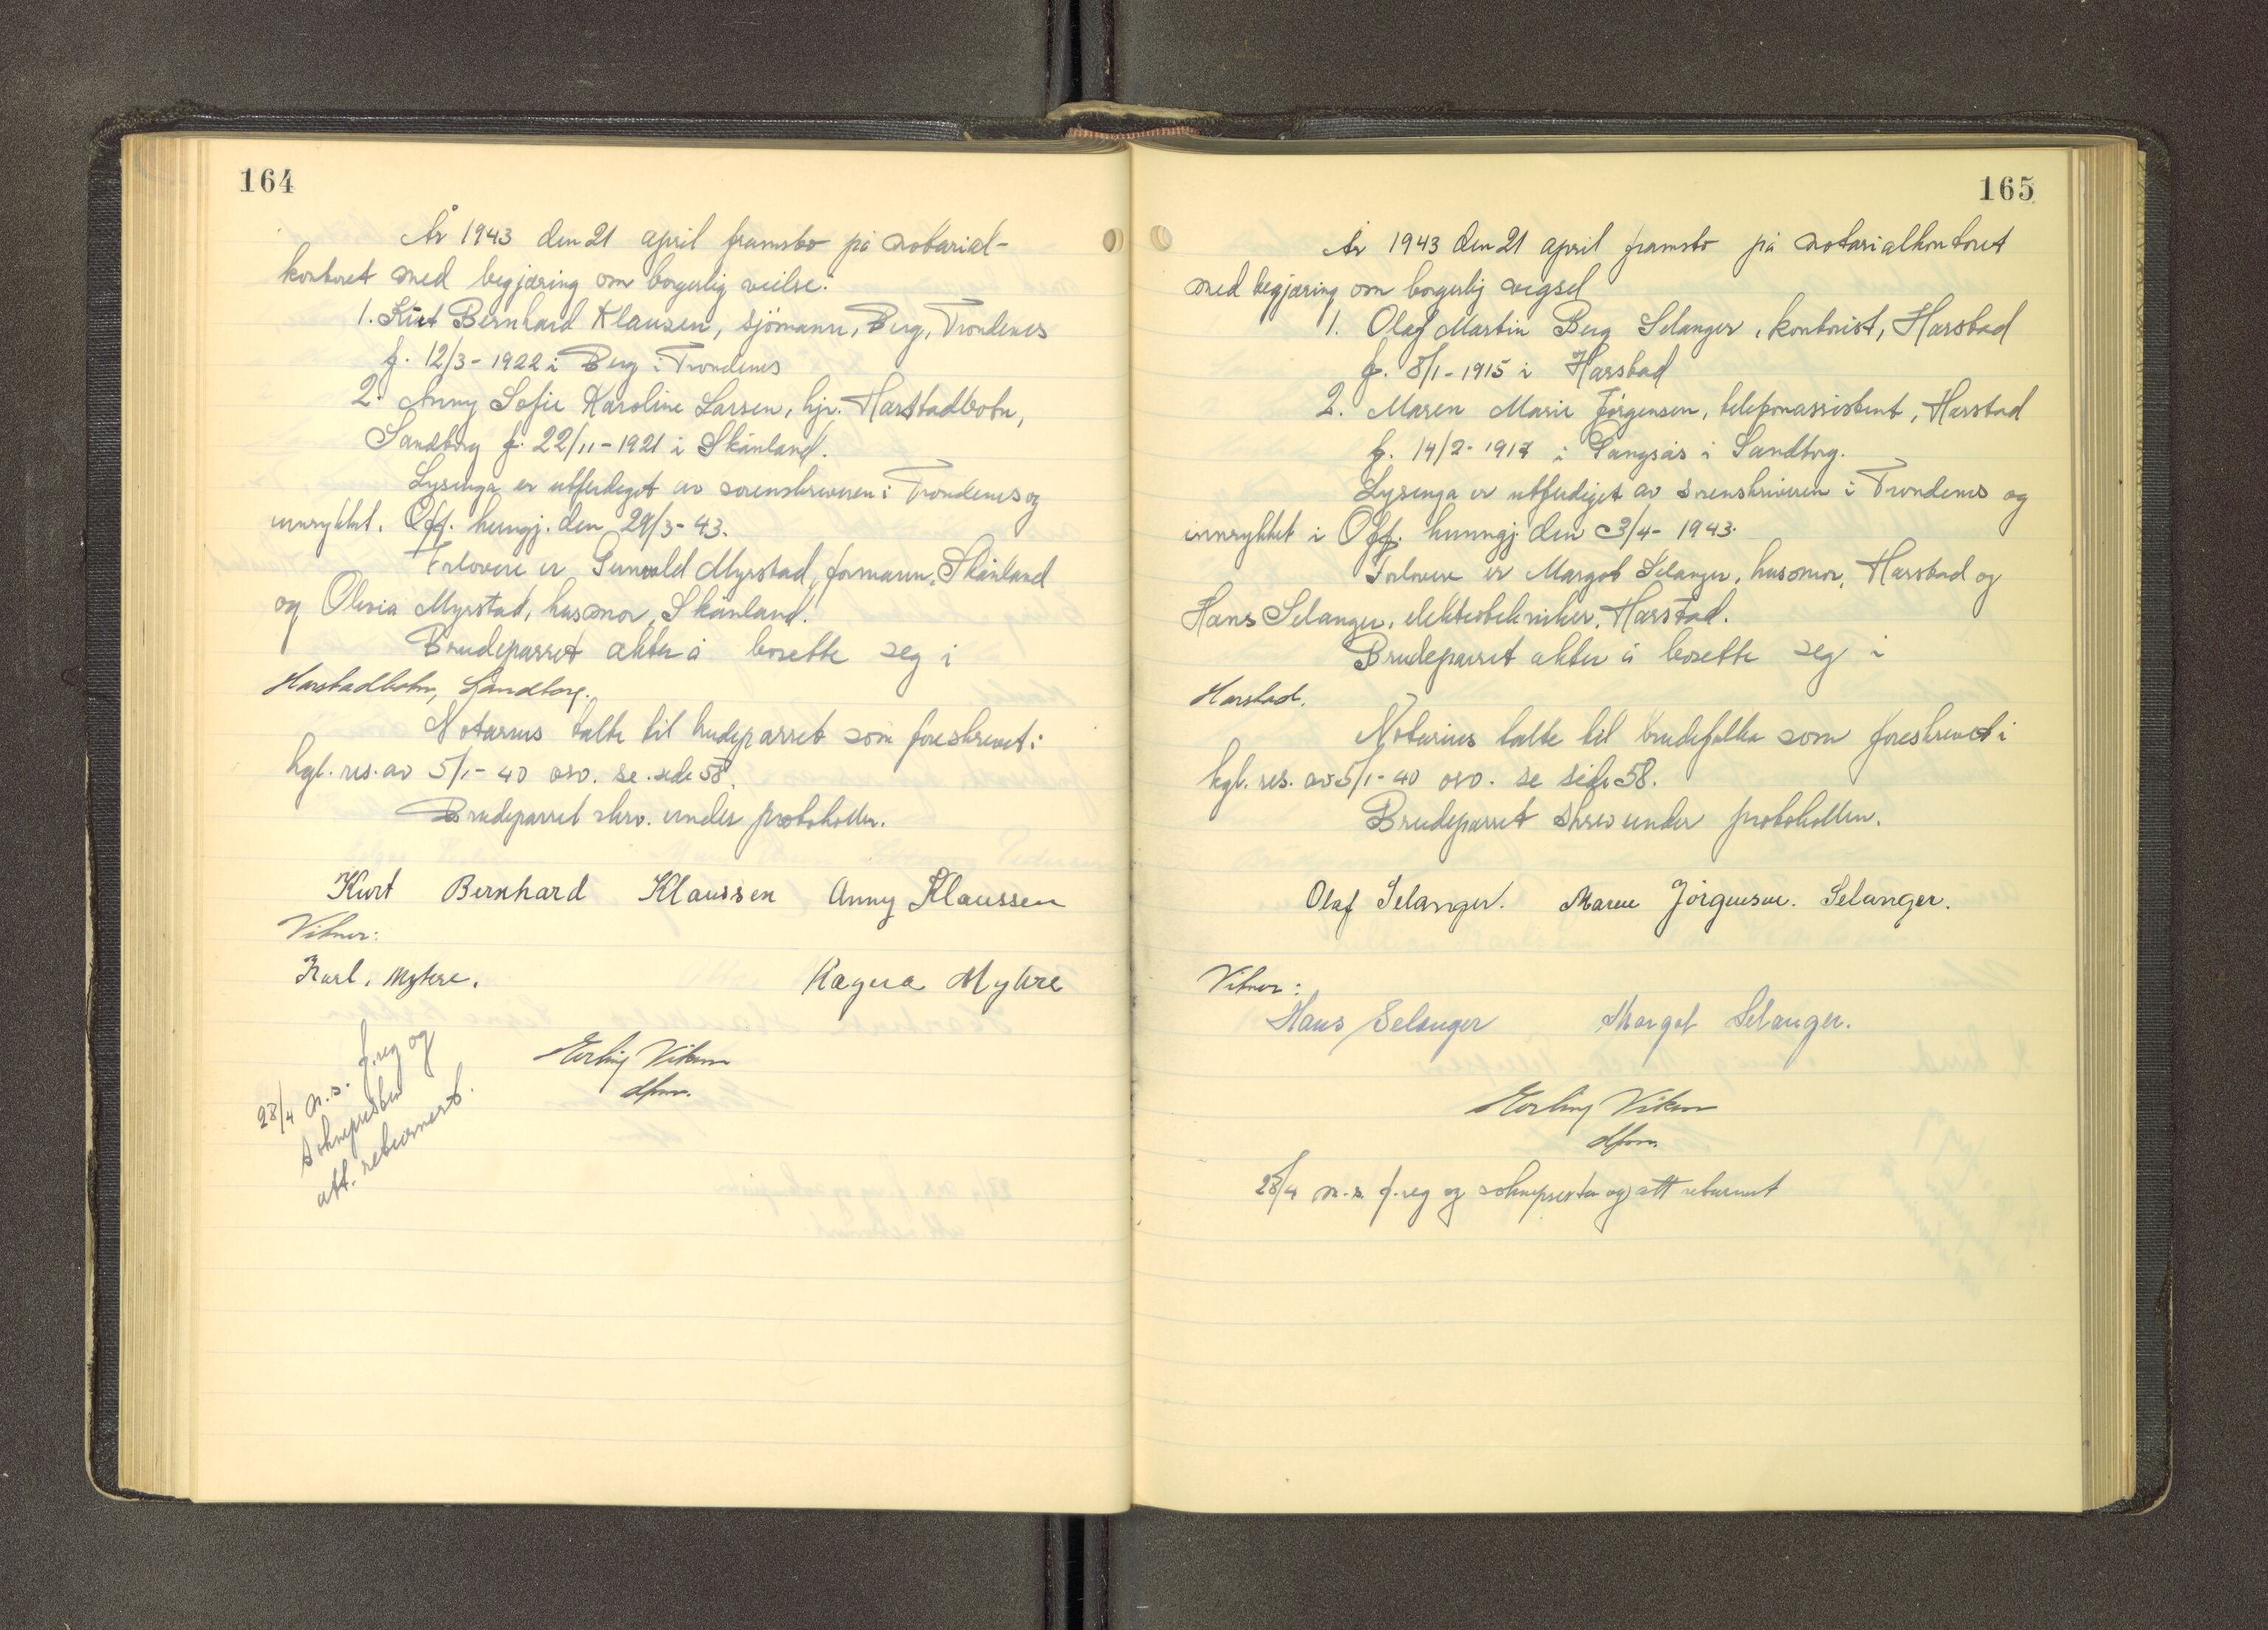 164
År 1943 den 21 april framsto på notarial-
kontoret med begjæring om borgerlig vielse:
1. Kurt Bernhard Klausen, sjömann, Berg, Trondenes
f. 12/3-1922 i Berg i Trondenes
2. Anny Sofie Karoline Larsen, hjv. Harstadbotn,
Sandtorg f. 22/11-1921 i Skånland.
Lysinga er utferdiget av sorenskriveren i Trondenes og
innrykket. Off. kungj. den 29/3-43.
Forlovere er Gunvald Myrstad, formann, Skånland
og Olivia Myrstad, husmor, Skånland.
Brudeparret akter å bosette seg i
Harstadbotn, Sandtorg.
Notarius talte til brudeparret som foreskrevet i
kgl. res. av 5/1-40 osv. se side 58.
Brudeparret skrv. under protokollen.
Kurt Bernhard Klaussen Anny Klaussen
Vitner:
Karl. Myhre. Ragna Myhre
Erling Viken
dfm.
28/4 m.s. f.reg og
soknepresten
att. returnert.
165
År 1943 den 21 april framsto på notarialkontoret
med begjæring om borgerlig vigsel
1. Olaf Martin Berg Selanger, kontorist, Harstad
f. 8/1-1915 i Harstad
2. Maren Marie Jörgensen, telefonassistent, Harstad
f. 14/2-1917 i Gangsås i Sandtorg.
Lysinga er utferdiget av sorenskriveren i Trondenes og
innrykket i Off. kunngj. den 3/4-1943.
Forlovere er Margot Selanger, husmor, Harstad og
Hans Selanger, elektrotekniker, Harstad.
Brudeparret akter å bosette seg i
Harstad.
Notarius talte til brudefolka som foreskrevet i
kgl. res. av 5/1-40 osv. se side 58.
Brudeparret skrev under protokollen.
Olaf Selanger. Maren Jörgensen. Selanger.
Vitner:
Hans Selanger Margot Selanger.
Erling Viken
dfm.
28/4 m.s. f.reg og soknepresten og att returnert